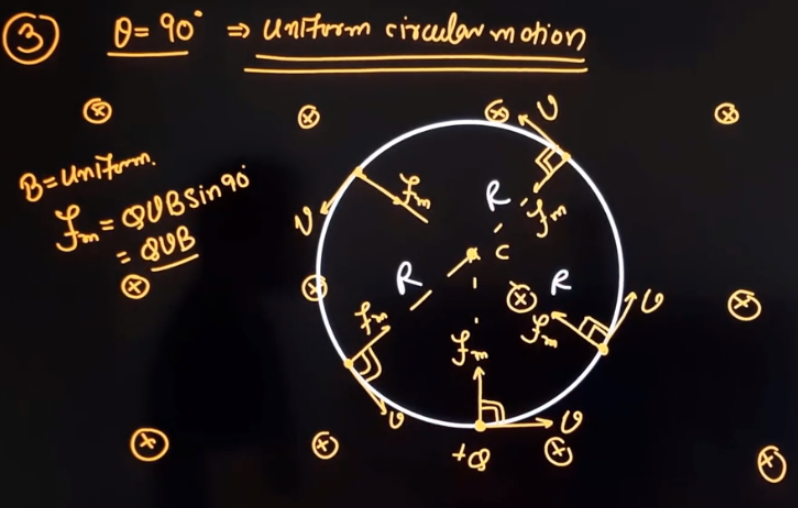 ③ θ = 90° ⇒ Uniform circular motion
B = Uniform.
fm = QVB sin 90°
= QVB
V
fm
R
fm
V
C
R
fm
R
fm
V
fm
V
+Q
V